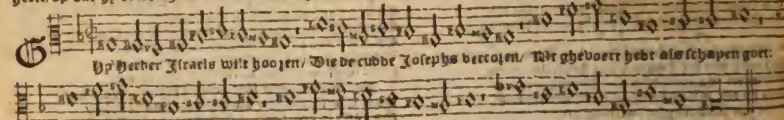 GHy Herder Israels wilt hooren/ Die de cudde Josephs vercoren/ Wt ghevoert hebt als schapen goet: